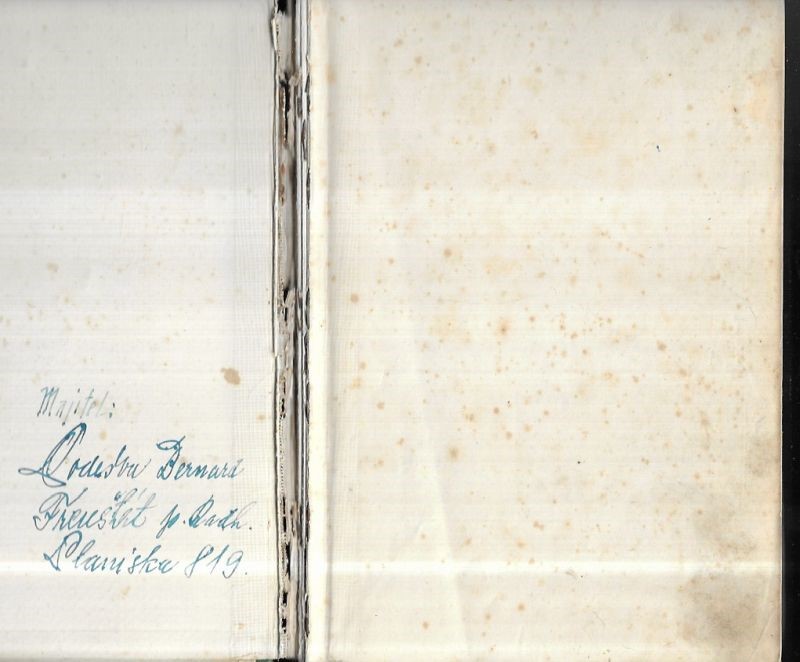 Majitel:
Bernard
Frenštát p. Radh.
Planiska 819.